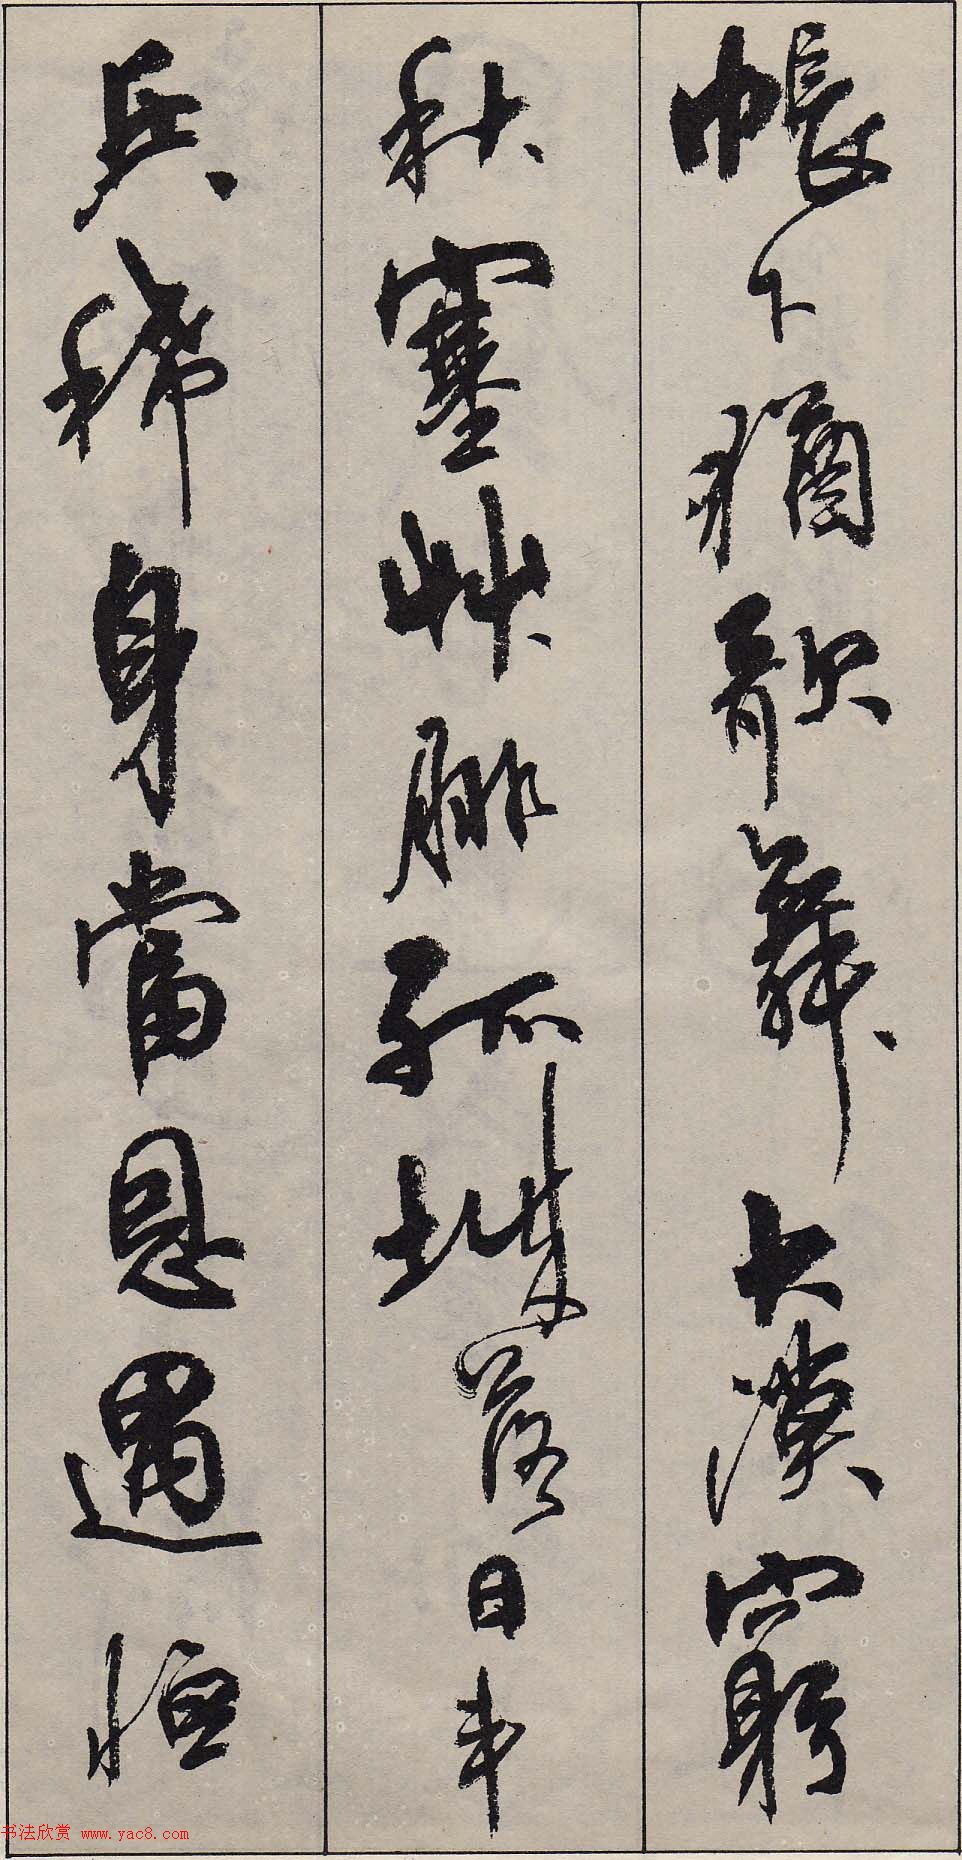 帳下猶歌舞大漠窮
秋塞草腓孤城落日斗
兵稀身當恩遇恒
书法欣赏 www.yac8.com